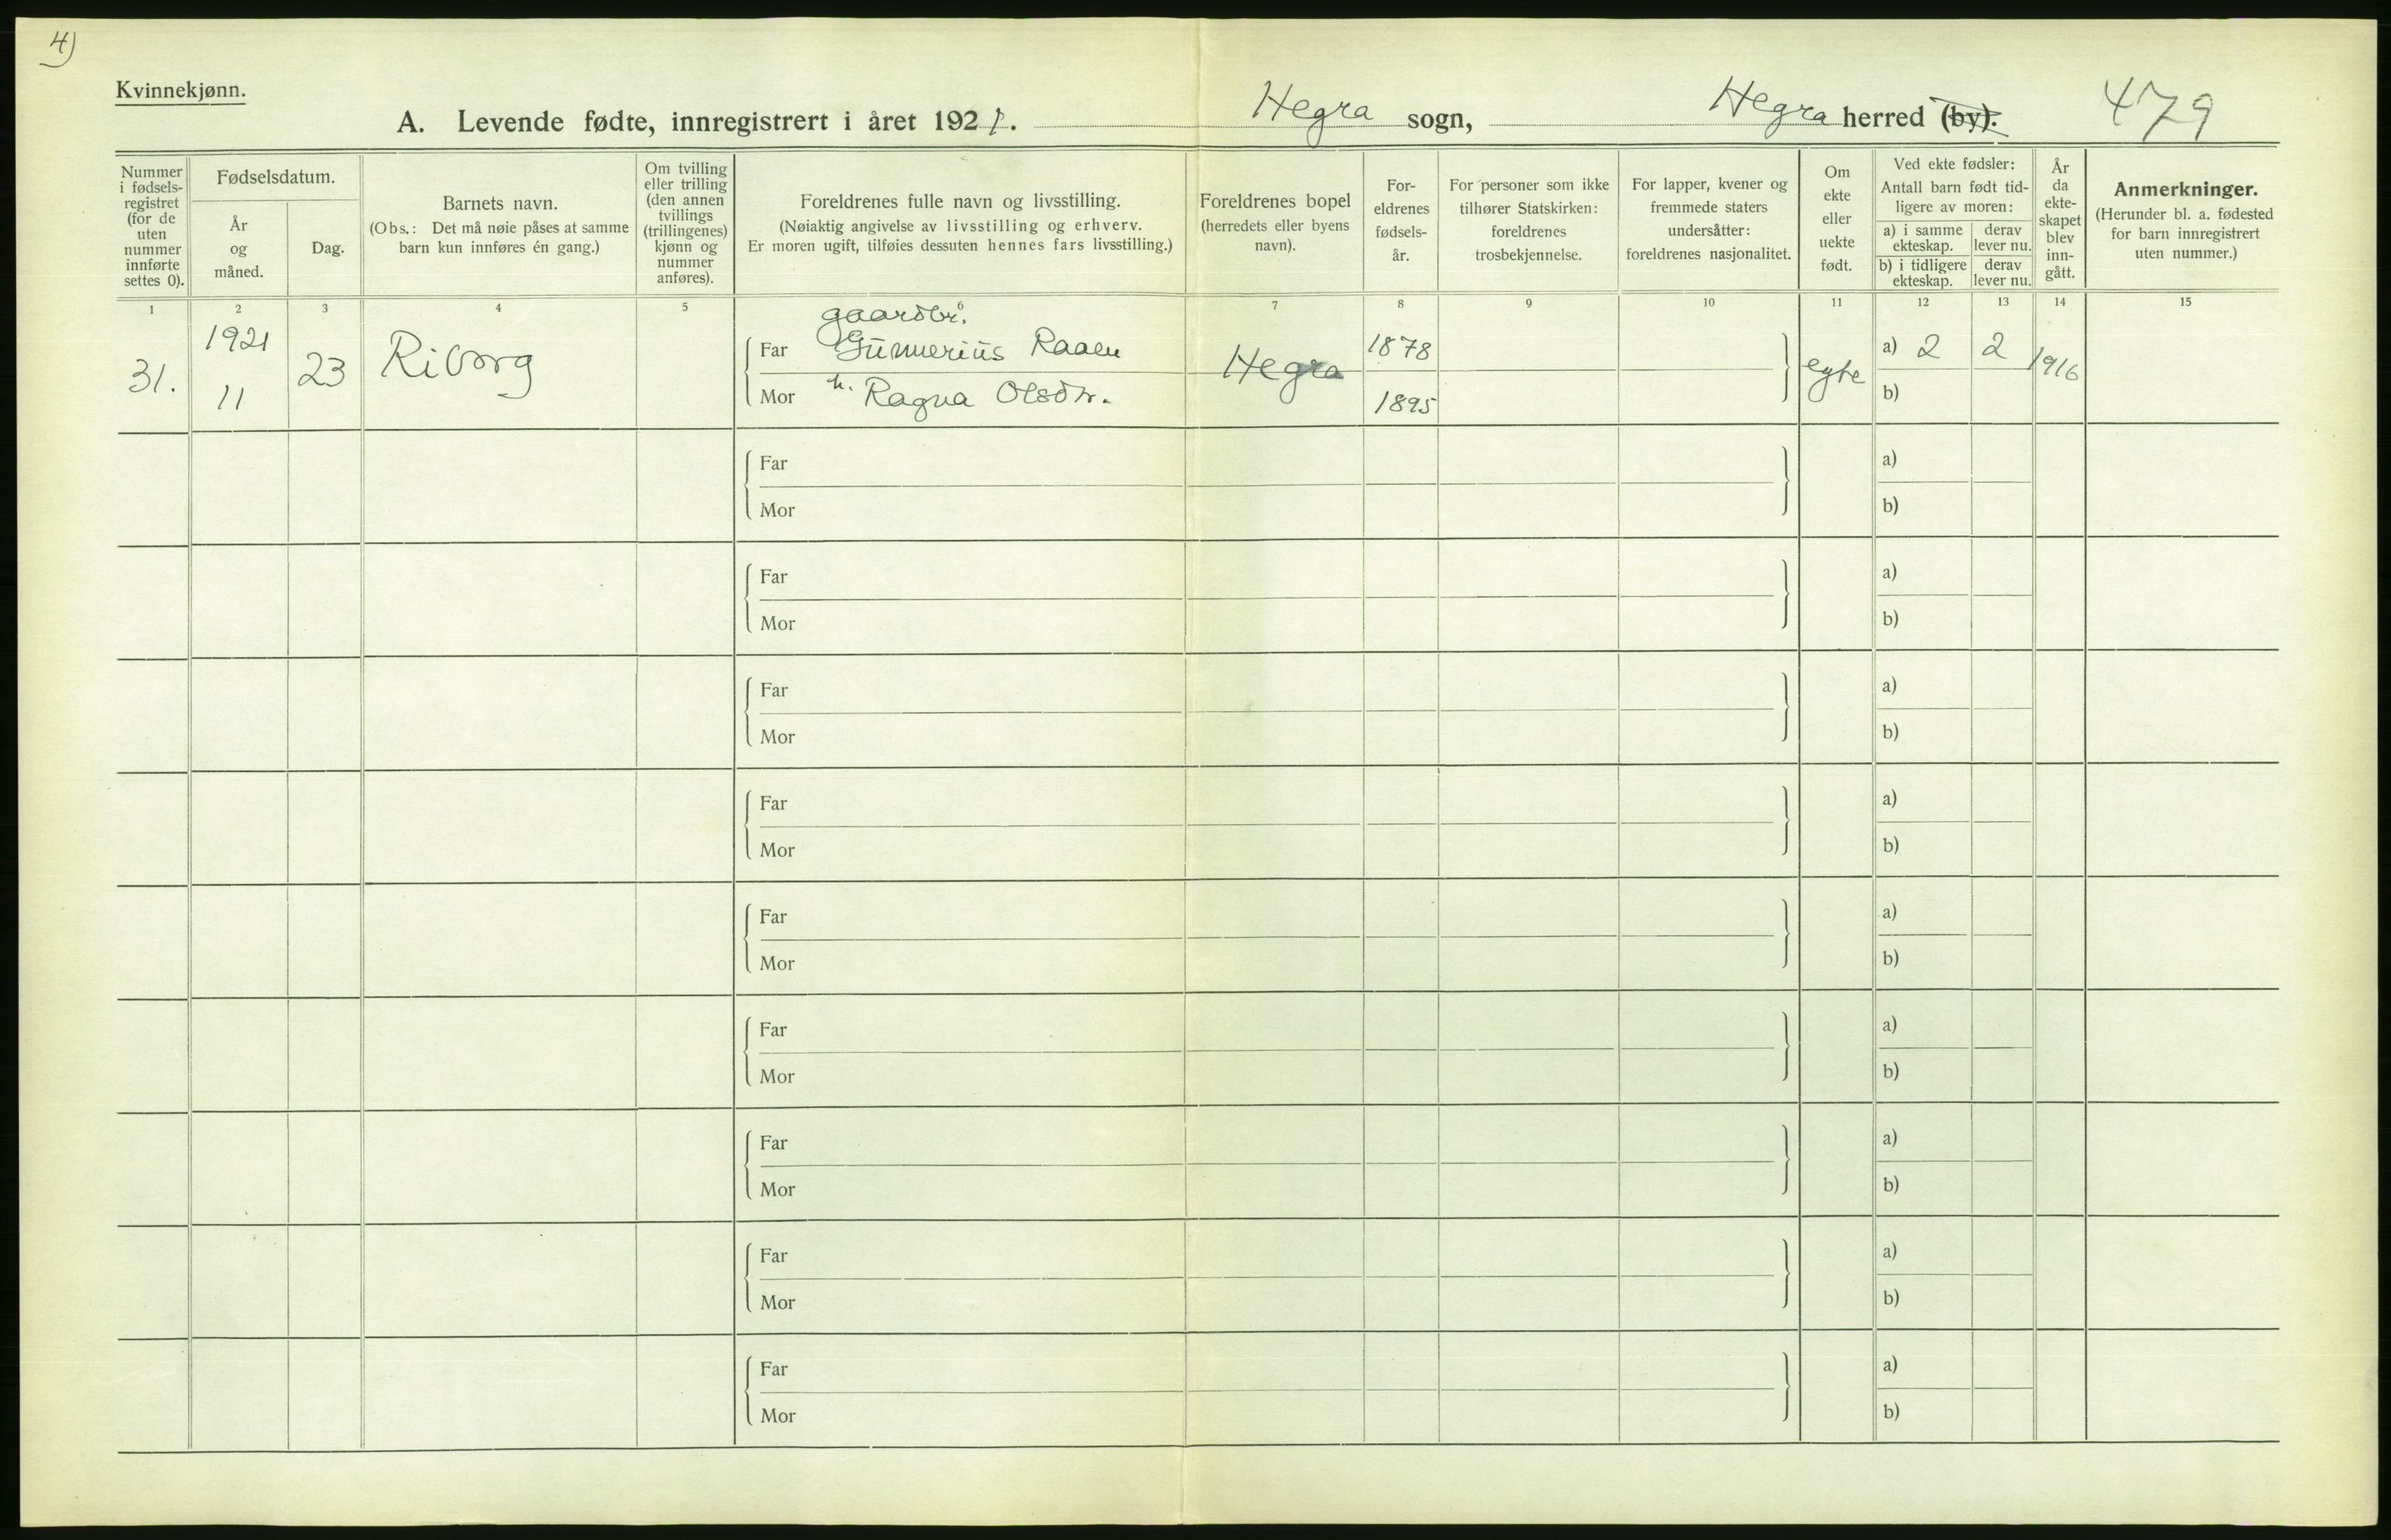 4)
Kvinnekjønn.
A. Levende fødte, innregistrert i året 1921. Hegra sogn, Hegra herred (by). 479
Nummer i fødsels-registret (for de uten nummer innførte settes 0).
Fødselsdatum.
År og måned.
Dag.
Barnets navn.
(Obs.: Det må nøie påses at samme barn kun innføres én gang.)
Om tvilling eller trilling (den annen tvillings (trillingenes) kjønn og nummer anføres).
Foreldrenes fulle navn og livsstilling.
(Nøiaktig angivelse av livsstilling og erhverv.
Er moren ugift, tilføies dessuten hennes fars livsstilling.)
Foreldrenes bopel
(herredets eller byens navn).
For-eldrenes fødsels-år.
For personer som ikke tilhører Statskirken: foreldrenes trosbekjennelse.
For lapper, kvener og fremmede staters undersåtter: foreldrenes nasjonalitet.
Om ekte eller uekte født.
Ved ekte fødsler:
Antall barn født tid-ligere av moren:
a) i samme ekteskap.
derav lever nu.
b) i tidligere ekteskap.
derav lever nu.
År da ekte-skapet blev inn-gått.
Anmerkninger.
(Herunder bl. a. fødested for barn innregistrert uten nummer.)
1 2 3 4 5 6 7 8 9 10 11 12 13 14 15
gaardbr.
31. 1921 11 23 Riborg Far Gunnerius Raaen Hegra 1878 egte a) 2 2 1916
Mor h. Ragna Olsdtr. 1895 b)
Far a)
Mor b)
Far a)
Mor b)
Far a)
Mor b)
Far a)
Mor b)
Far a)
Mor b)
Far a)
Mor b)
Far a)
Mor b)
Far a)
Mor b)
Far a)
Mor b)